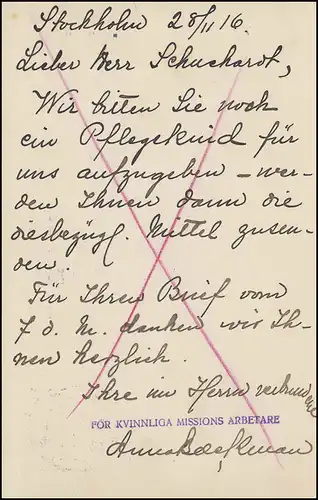 Stockholm 28/11 16.
Lieber Herr Schuchardt,
Wir bitten Sie noch
ein Pflegekind für
uns aufzugeben – wer-
den Ihnen dann die
diesbezügl. Mittel zusen-
den.
Für Ihren Brief vom
7 d. M. danken wir Ih-
nen herzlich.
Ihre im Herrn verbundene
FÖR KVINNLIGA MISSIONS ARBETARE
Anna